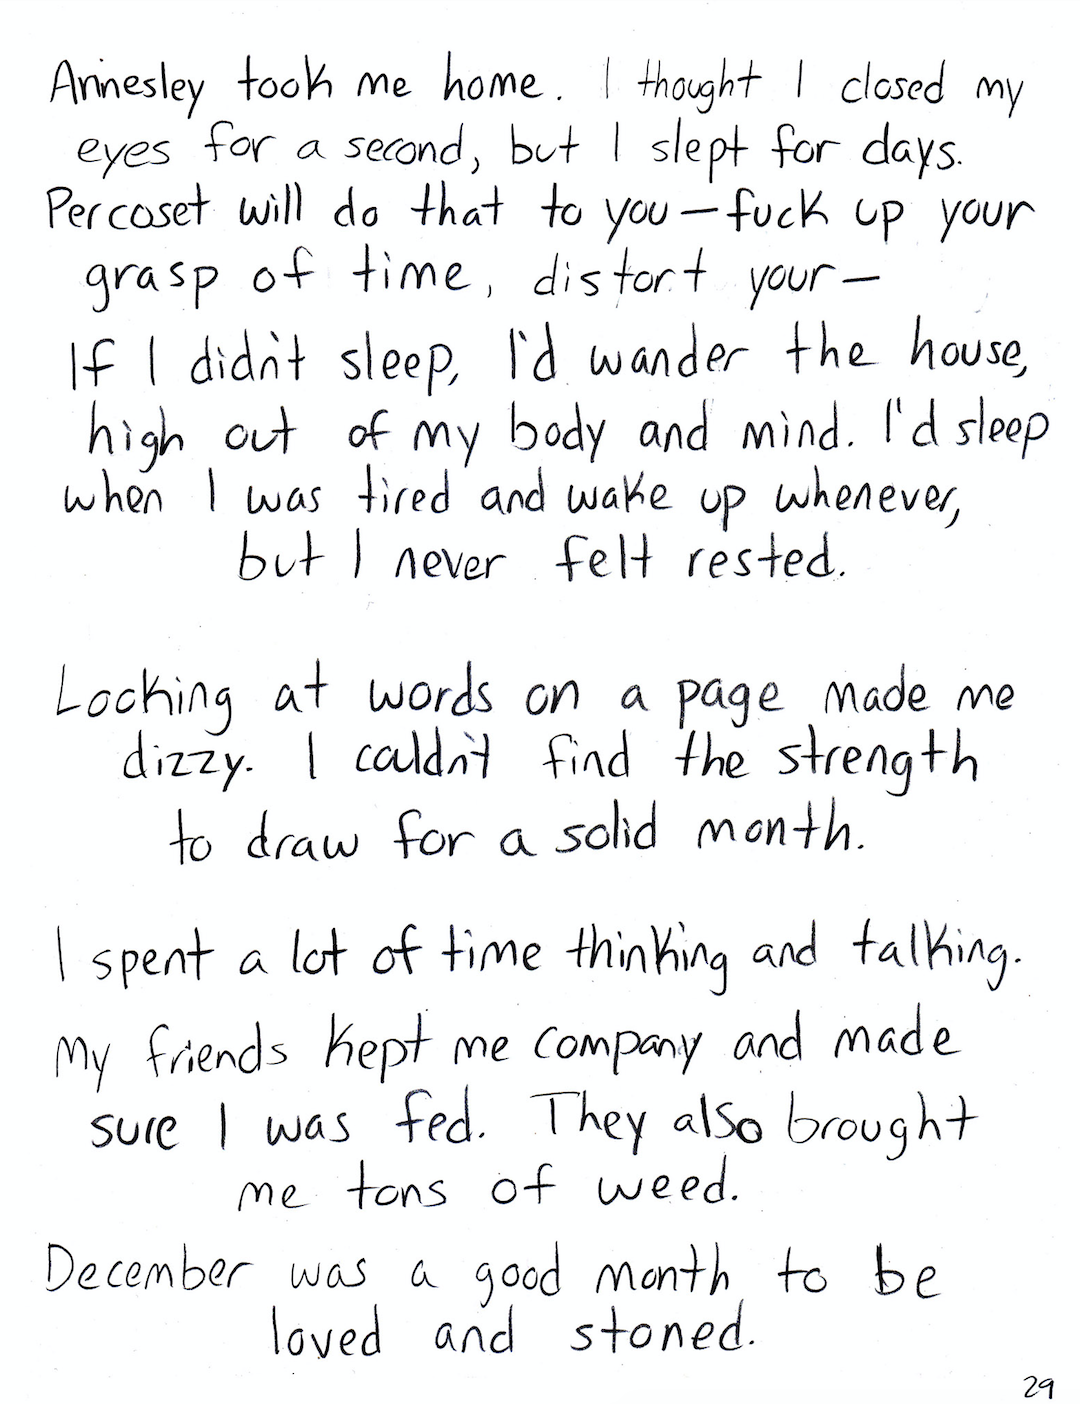 Annesley took me home. I thought I closed my
eyes for a second, but I slept for days.
Percoset will do that to you—fuck up your
grasp of time, distort your—
If I didn't sleep, I'd wander the house,
high out of my body and mind. I'd sleep
when I was tired and wake up whenever,
but I never felt rested.
Looking at words on a page made me
dizzy. I couldn't find the strength
to draw for a solid month.
I spent a lot of time thinking and talking.
My friends kept me company and made
sure I was fed. They also brought
me tons of weed.
December was a good month to be
loved and stoned.
29